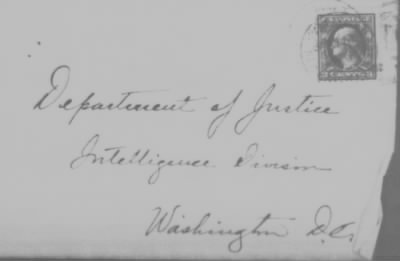 Department of Justice
Intelligence Division
Washington D.C.